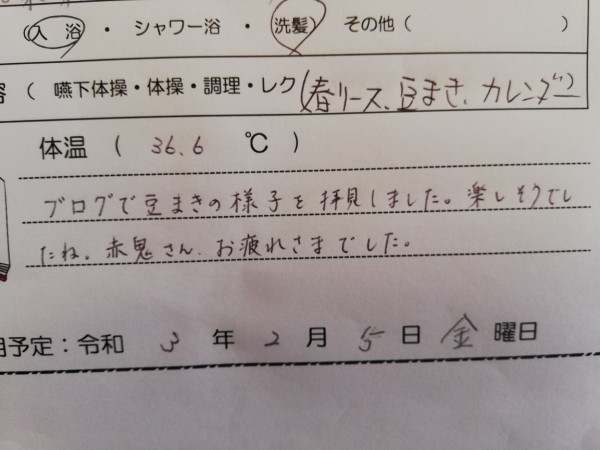 入浴 ・ シャワー浴 ・ 洗髪 その他 ( )
容 ( 嚥下体操・体操・調理・レク (春リース、豆まき、カレンダー)
体温 ( 36.6 ℃ )
ブログで豆まきの様子を拝見しました。楽しそうでし
たね。赤鬼さん、お疲れさまでした。
用予定:令和 3 年 2 月 5 日 金 曜日